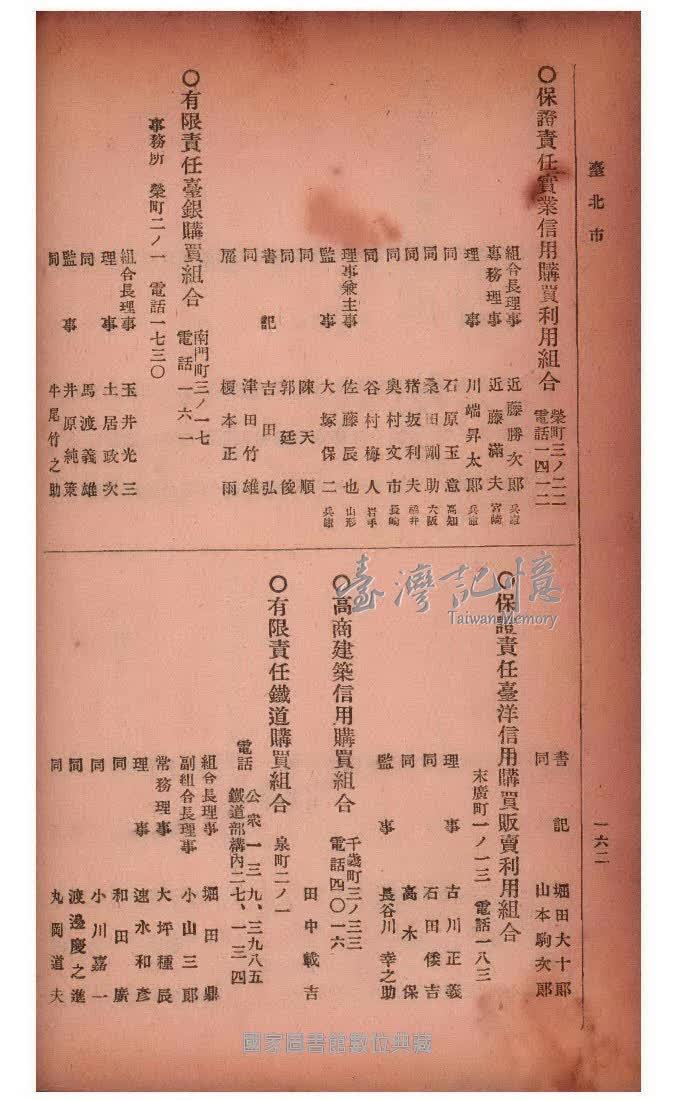 臺北市
一六二
○保證責任實業信用購買利用組合
榮町三ノ二二
電話一四一二
組合長理事 近藤勝次郎 兵庫
專務理事 近藤滿夫 宮崎
理事 川端昇太郎 兵庫
同 石原玉意 高知
同 桑田剛助 大阪
同 猪坂利夫 福井
同 奧村文市 長崎
同 谷村梅人 岩手
理事兼主事 佐藤辰也 山形
監事 大塚保二 兵庫
同 陳天順
同 郭廷俊
書記 吉田弘
同 津田竹雄
雇 榎本正雨
○有限責任臺銀購買組合
南門町三ノ一七
電話一六一
事務所 榮町二ノ一 電話一七三〇
組合長理事 玉井光三
理事 土居政次
同 馬渡義雄
監事 井原純策
同 牛尾竹之助
書記 堀田大十郎
同 山本駒次郎
○保證責任臺洋信用購買販賣利用組合
末廣町一ノ一三 電話一八三
理事 古川正義
同 石田倭吉
同 高木保
監事 長谷川幸之助
○高商建築信用購買組合
千歲町三ノ三三
電話四〇一六
田中載吉
○有限責任鐵道購買組合 泉町二ノ一
電話 公衆一三九、三九八五
鐵道部構內二七、一三四
組合長理事 堀田鼎
副組合長理事 小山三郎
常務理事 大坪種辰
理事 速水和彥
同 和田廣
同 小川嘉一
同 渡邊慶之進
同 丸岡道夫
臺灣記憶
Taiwan Memory
國家圖書館數位典藏